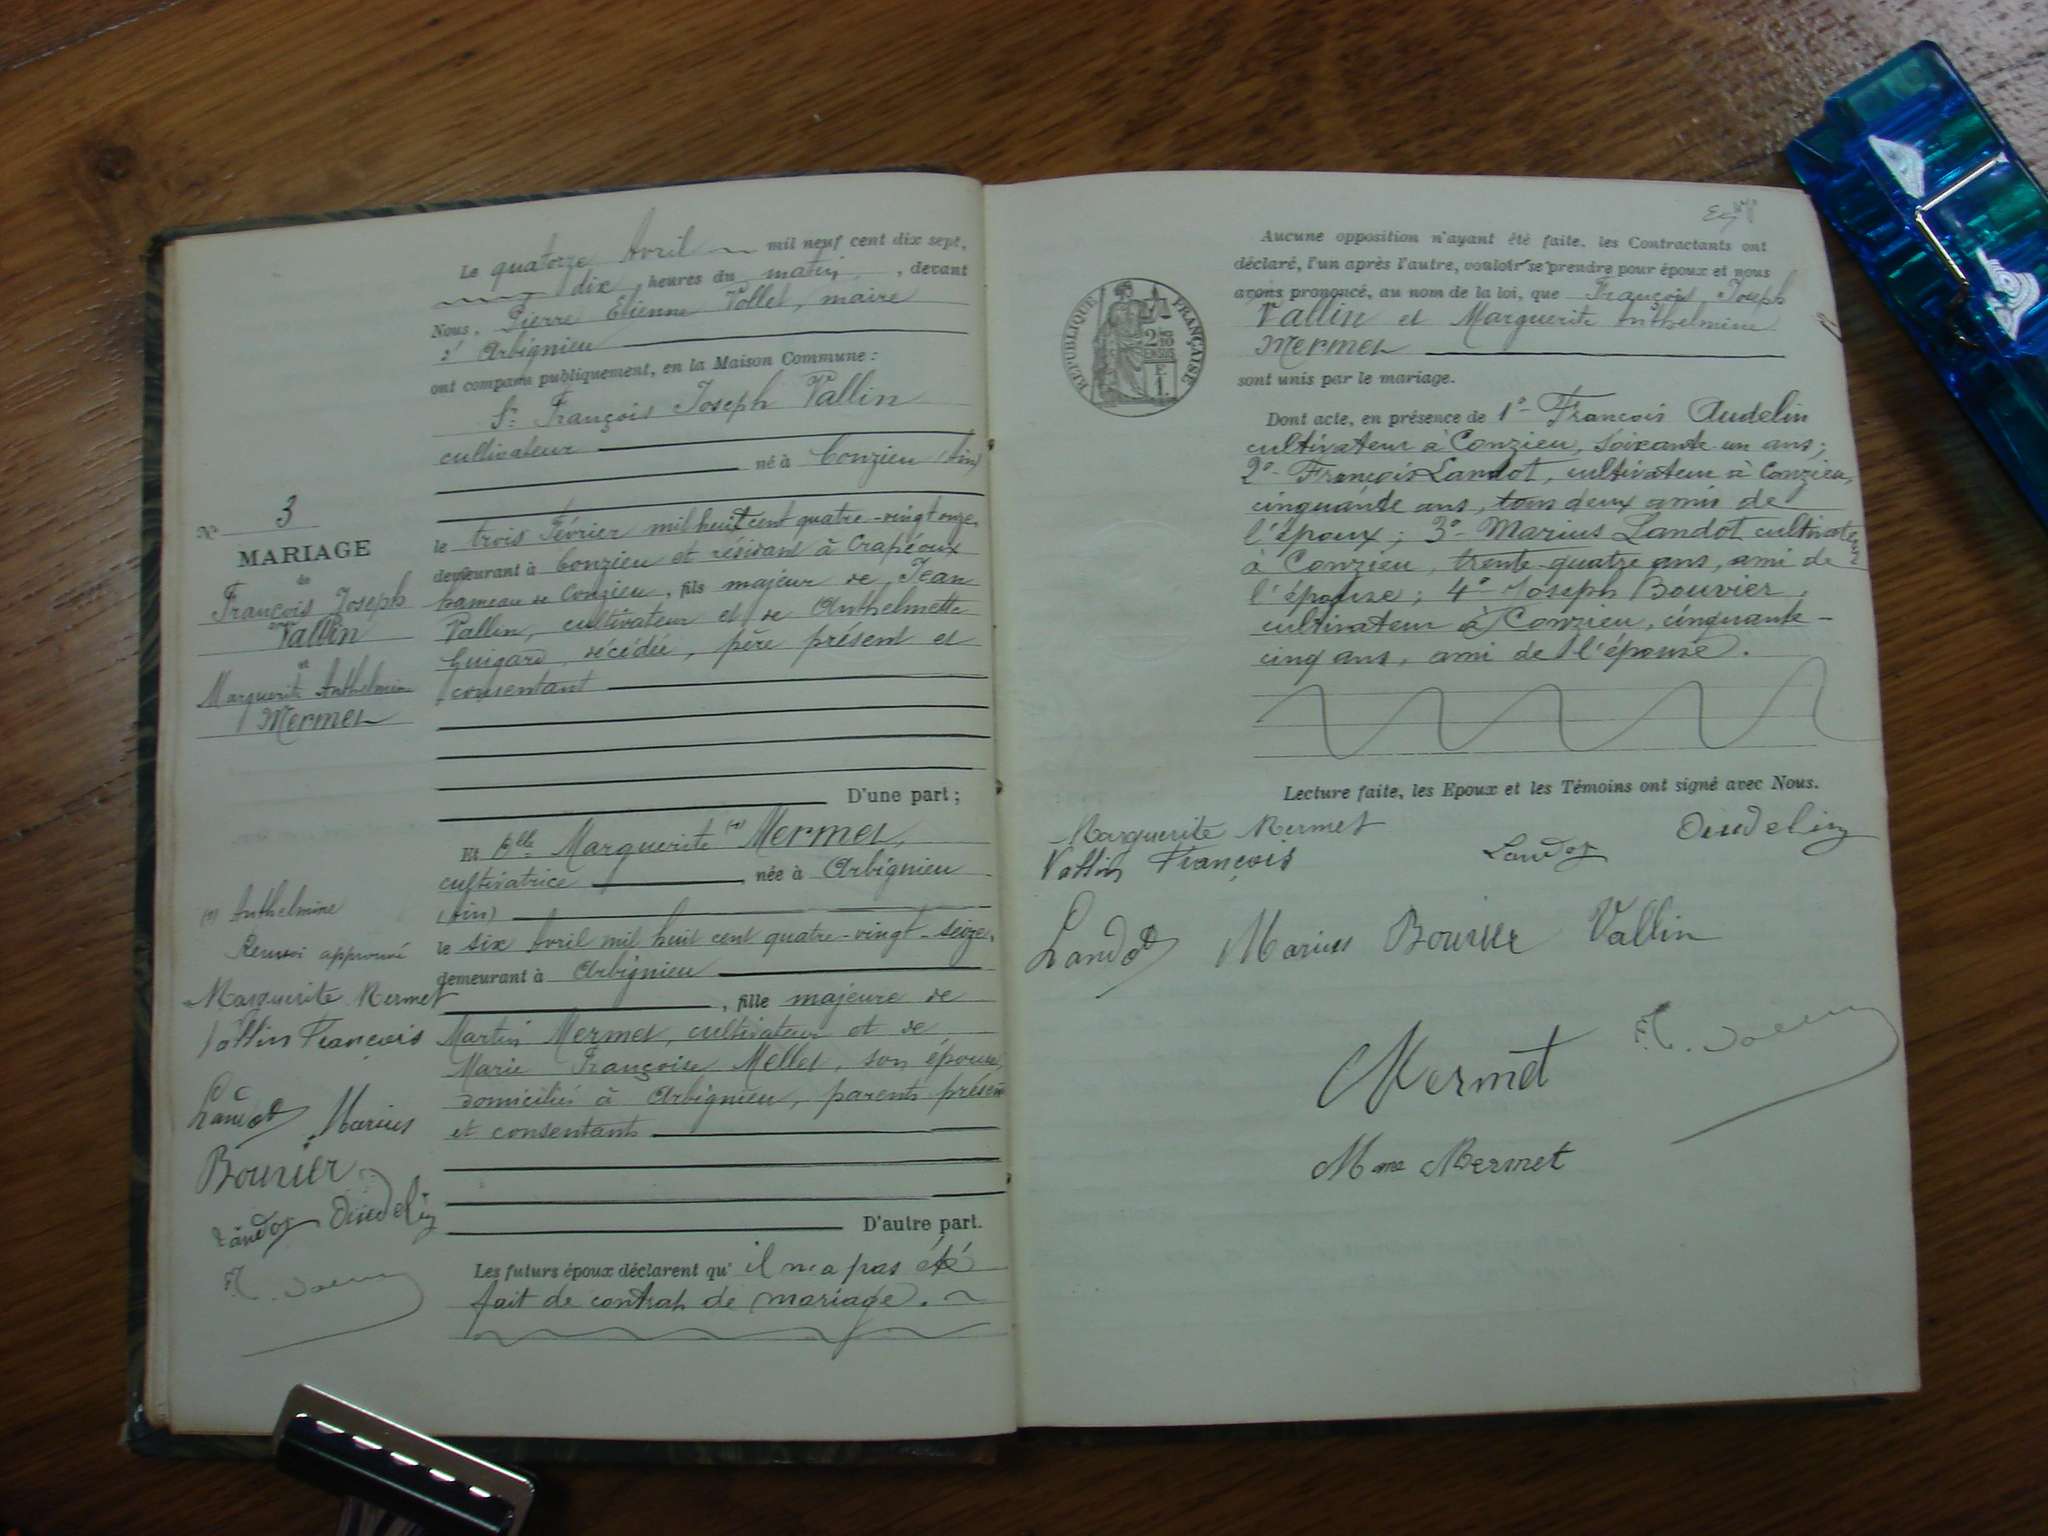 Le quatorze Avril mil neuf cent dix sept,
dix, heures du matin, devant
Nous, Pierre Etienne Vollet, maire
d'Arbignieu
ont comparu publiquement, en la Maison Commune :
Sr François Joseph Vallin
cultivateur né à Conzieu (Ain)
le trois Février mil huit cent quatre-vingt onze,
demeurant à Conzieu et résidant à Crapéoux
hameau de Conzieu, fils majeur de Jean
Vallin, cultivateur et de Anthelmette
Guigard, décédée, père présent et
consentant
D'une part ;
Et Dlle Marguerite (1) Mermet,
cultivatrice, née à Arbignieu
(Ain)
le six Avril mil huit cent quatre-vingt-seize,
demeurant à Arbignieu
, fille majeure de
Martin Mermet, cultivateur et de
Marie Françoise Mellet, son épouse,
domiciliés à Arbignieu, parents présents
et consentants
D'autre part.
Les futurs époux déclarent qu' il n'a pas été
fait de contrat de mariage.
N° 3
MARIAGE
de
François Joseph
Vallin
et
Marguerite Anthelmine
Mermet
(1) Anthelmine
Renvoi approuvé
Marguerite Mermet
Vallin François
Landot Marius
Bouvier
Landot Oudelin
REPUBLIQUE FRANÇAISE
2/10
EN SUS
F.
1.
Aucune opposition n'ayant été faite, les Contractants ont
déclaré, l'un après l'autre, vouloir se prendre pour époux et nous
avons prononcé, au nom de la loi, que François Joseph
Vallin et Marguerite Anthelmine
Mermet
sont unis par le mariage.
Dont acte, en présence de 1°- François Audelin
cultivateur à Conzieu, soixante-un ans;
2°- François Landot, cultivateur à Conzieu,
cinquante ans, tous deux amis de
l'époux; 3°- Marius Landot cultivateur
à Conzieu, trente-quatre ans, ami de
l'épouse; 4°- Joseph Bouvier,
cultivateur à Conzieu, cinquante-
cinq ans, ami de l'épouse.
Lecture faite, les Epoux et les Témoins ont signé avec Nous.
Marguerite Mermet
Vallin François Landot Oudelin
Landot Marius Bouvier Vallin
Mermet
Mme Mermet